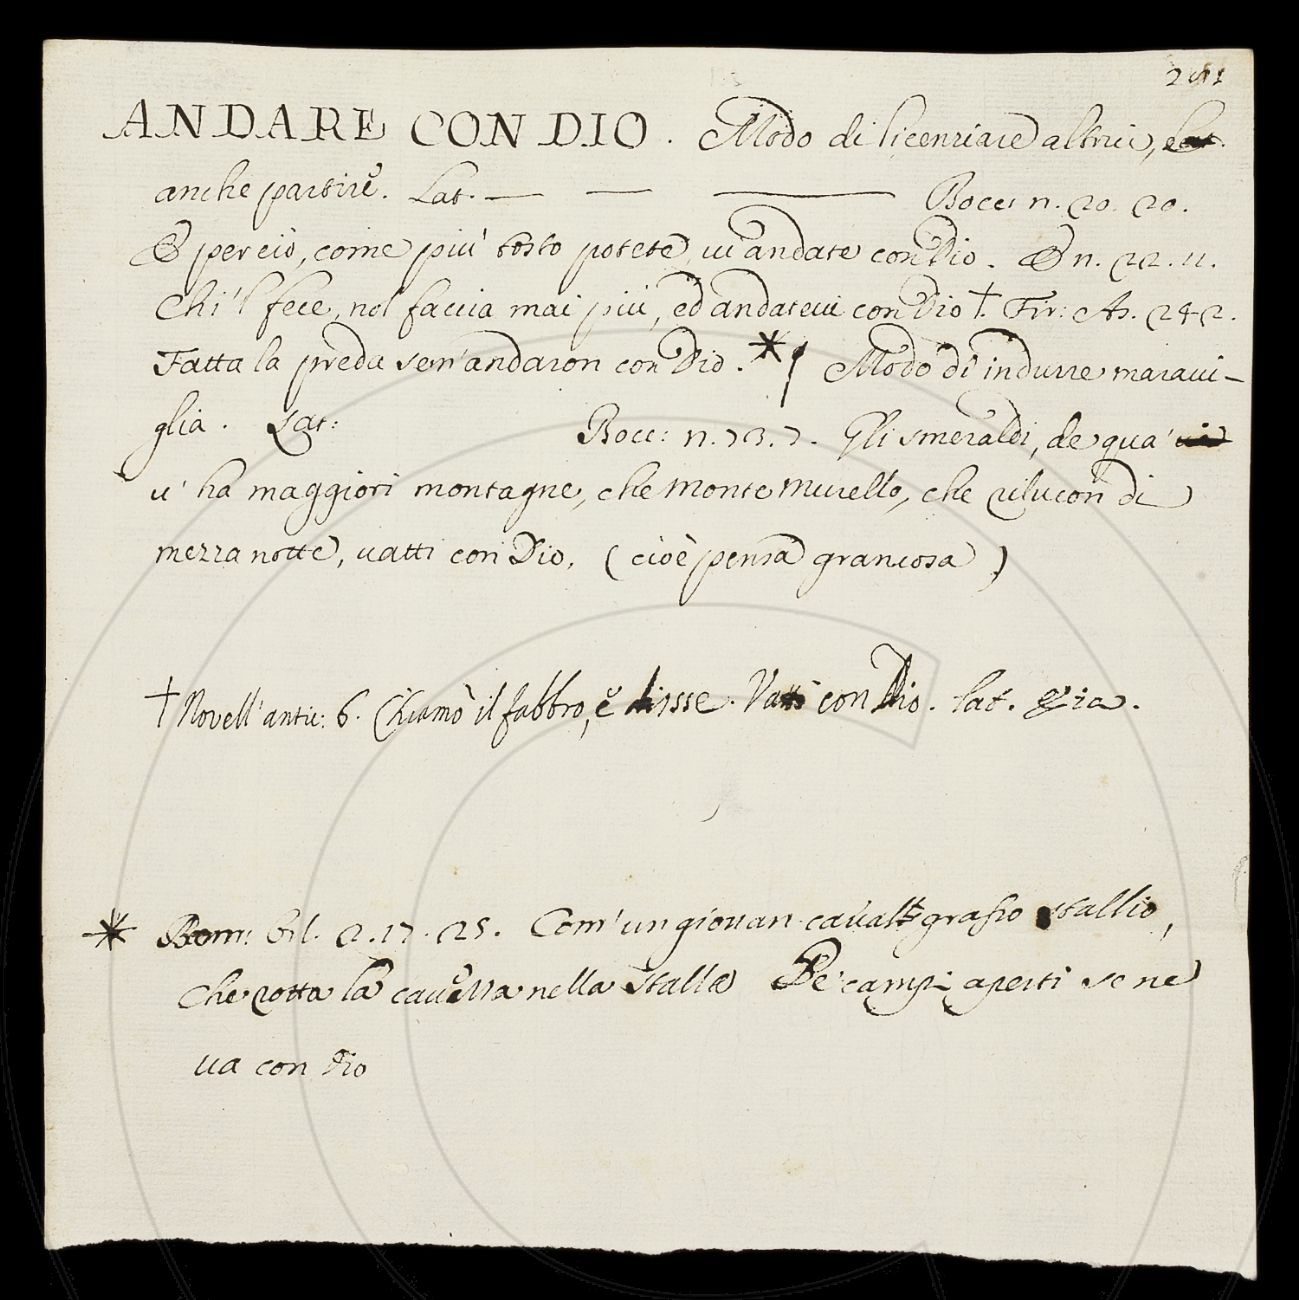 ANDARE CON DIO. Modo di licenziare altrui, e
anche partire. Lat. — — — Bocc: n. 20. 20.
E perciò, come più tosto potete, vi andate con Dio. E n. 22. 11.
Chi 'l fece, nol faccia mai più, ed andatevi con Dio † Fir: As. 242.
Fatta la preda sen'andaron con Dio. * Modo di indurre maravi-
glia. Lat: Bocc: n. 73. 7. Gli smeraldi, de qua'
v' ha maggiori montagne, che monte Murello, che rilucon di
mezza notte, vatti con Dio, (cioè pensa gran cosa)
† Novell' antic: 6. Chiamò il fabbro, e disse. Vatti con Dio. lat.
* Bern: Orl. 2. 17. 25. Com' un giovan cavallo grasso stallio,
Che rotta la cavezza nella stalla Pe' campi aperti se ne
va con Dio